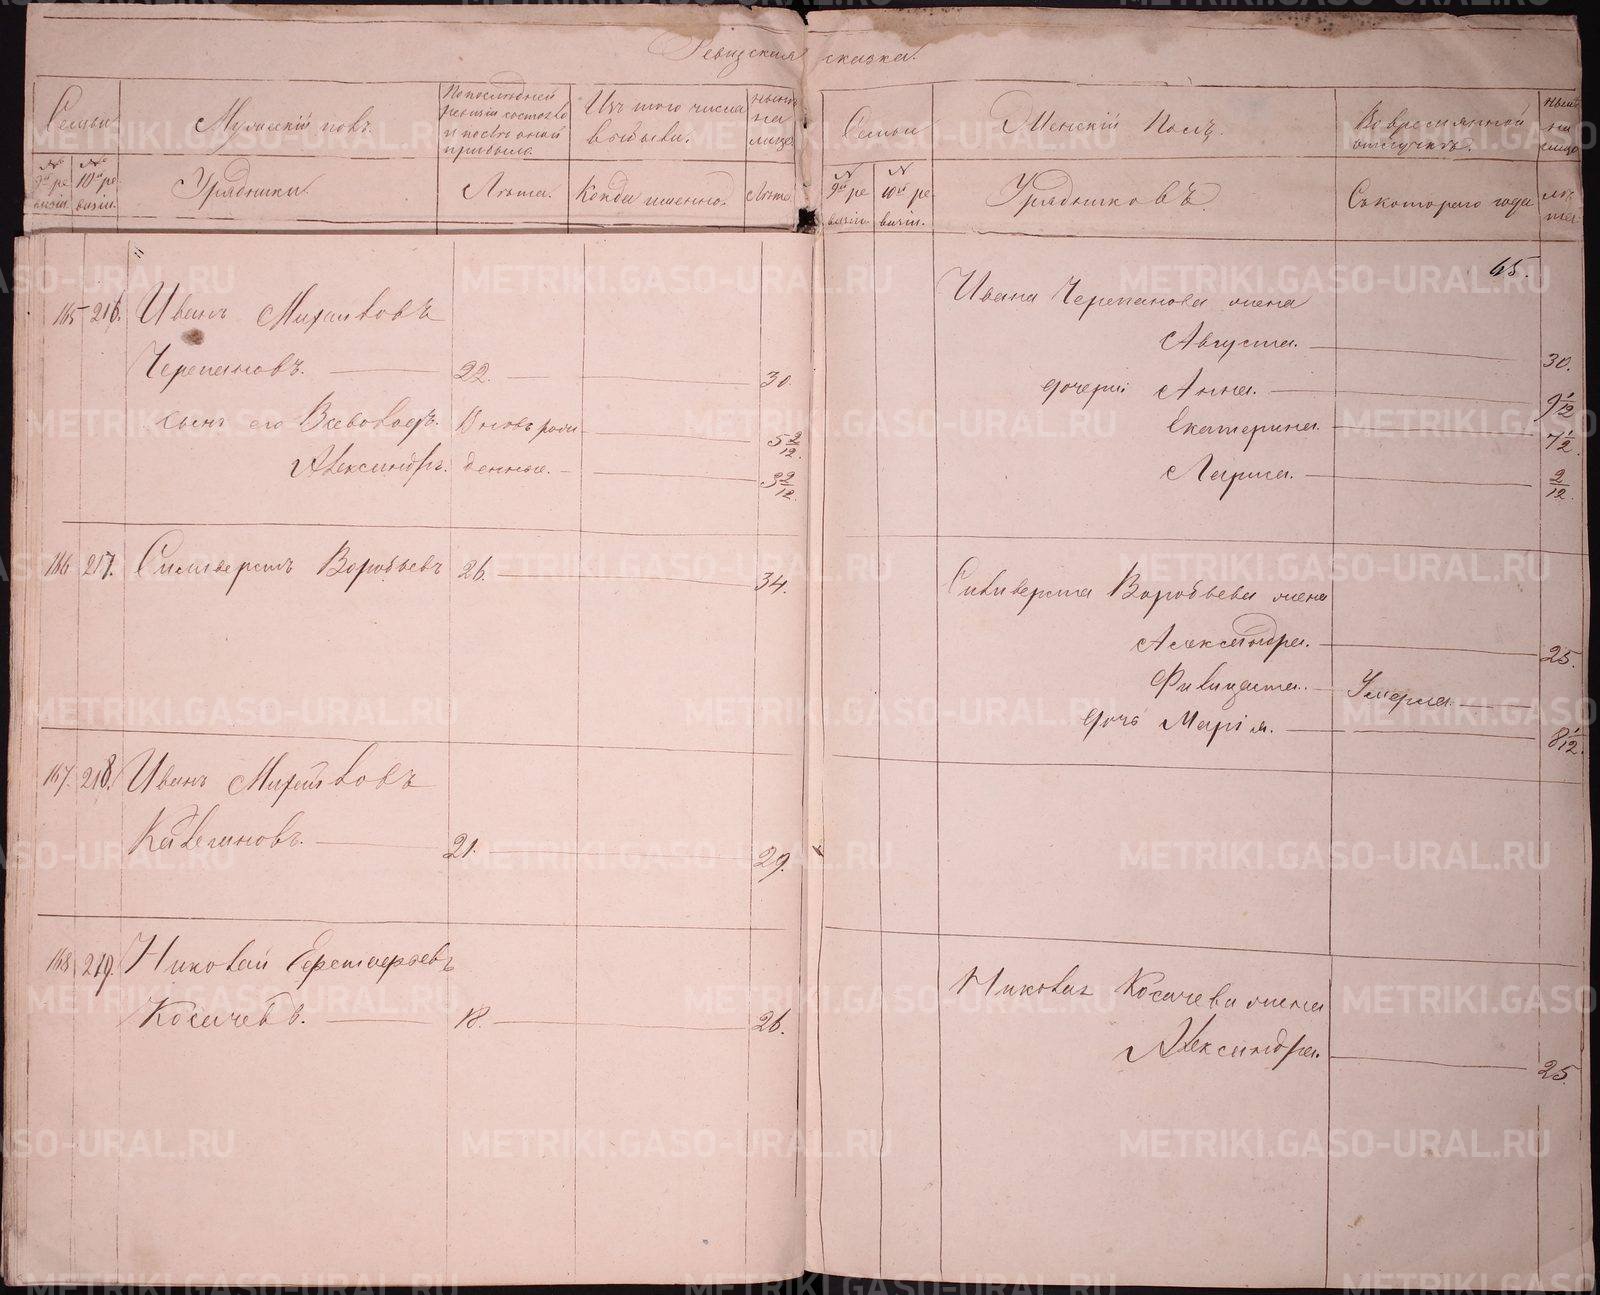 Ревизская сказка.
Семьи
Мужескiй полъ.
По последней ревизiи состояло и после оной прибыло.
Изъ того числа выбыли.
Ныне на лицо.
№ 9й ре визiи.
№ 10й ре визiи.
Урядники.
Лѣта.
Когда именно.
Лѣта.
165 216. Иванъ Михаиловъ
Черепановъ. 22. 30.
сынъ его Всеволодъ. Вновь рож 5 2/12.
Александръ. денные. 3 2/12.
166 217. Сильверстъ Воробьевъ 26. 34.
167. 218. Иванъ Михайловъ
Калегановъ. 21. 29.
168 219. Николай
Косачевъ. 18. 26.
Семьи
Женскiй Полъ.
Во временной отлучкѣ.
Ныне на лицо
№ 9й ре визiи.
№ 10й ре визiи.
Урядниковъ.
Съ котораго года
лѣ та.
65.
Ивана Черепанова жена
Августа. 30.
дочери Анна. 9 1/12
Екатерина. 7 1/2.
Лариса. 2/12.
Сильверста Воробьева жена
Александра. 25.
Фелицата. Умерла.
дочь Марiя. 8 1/12.
Николая Косачева жена
Александра. 25.
METRIKI.GASO-URAL.RU